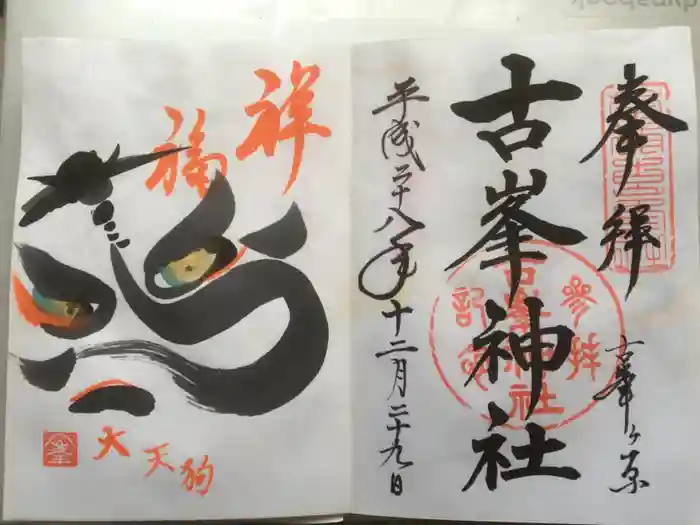 奉拝
古峯ヶ原
古峯神社
平成二十八年十二月二十九日
参拝記念
古峯神社
祥福
大天狗